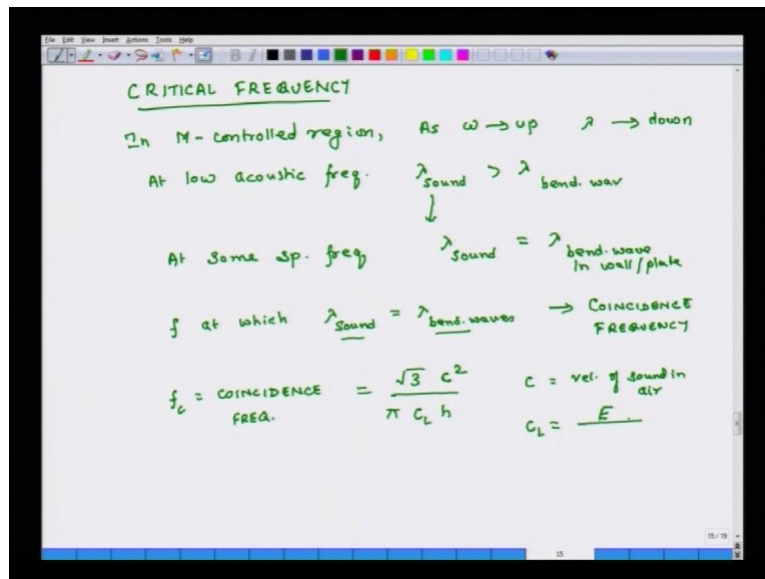 File Edit View Insert Actions Tools Help
CRITICAL FREQUENCY
In M-controlled region, As ω → up λ → down
At low acoustic freq. λ sound > λ bend. wav
↓
At some sp. freq λ sound = λ bend. wave in wall/plate
f at which λ sound = λ bend. waves → COINCIDENCE FREQUENCY
f_c = COINCIDENCE FREQ. = √3 c² / π C_L h C = vel. of sound in air
C_L = E
15/19
15